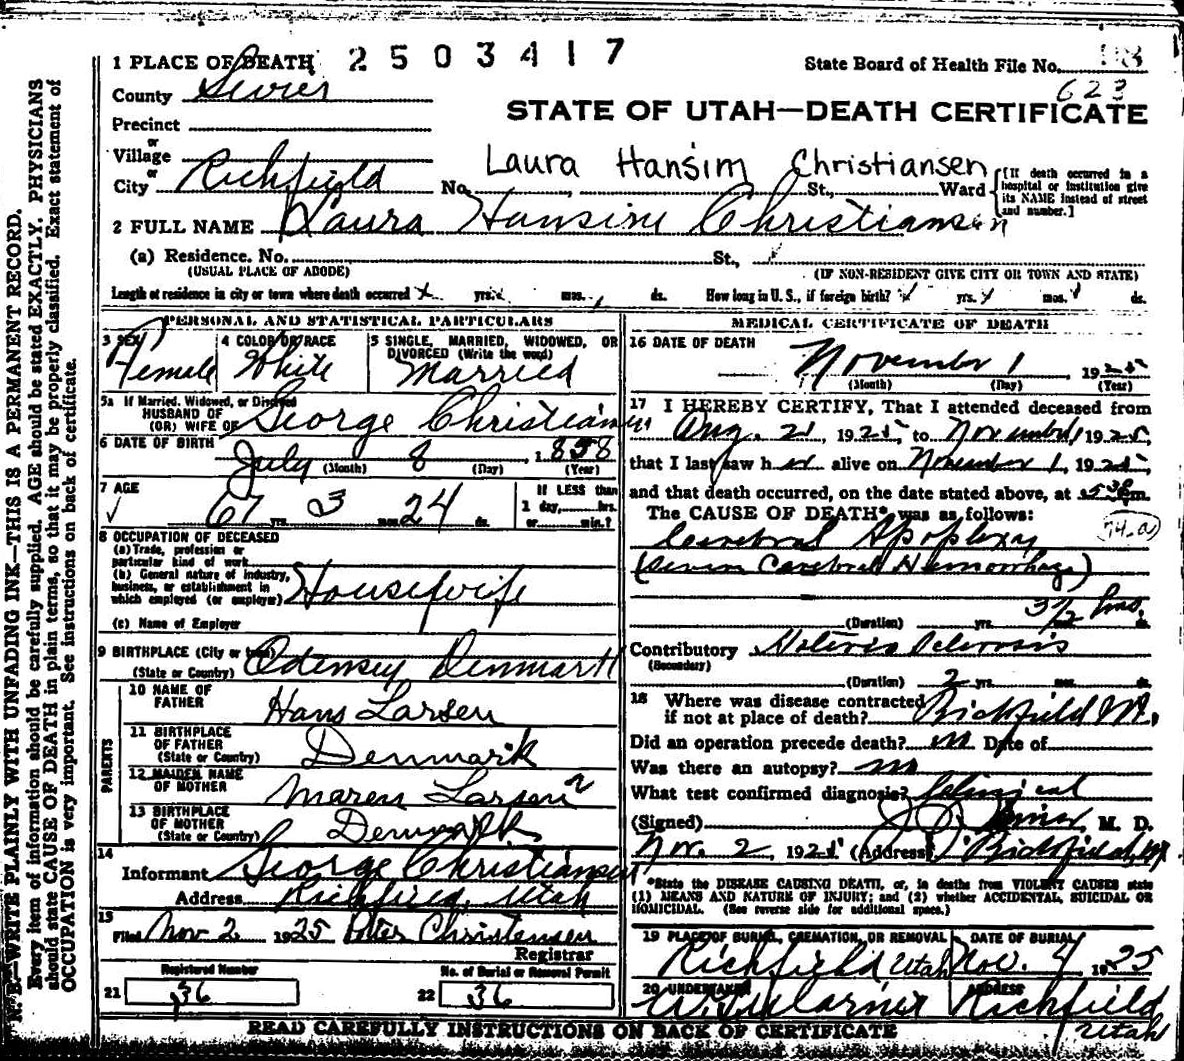 1 PLACE OF DEATH 2503417 State Board of Health File No. 98
County Sevier 623
STATE OF UTAH—DEATH CERTIFICATE
Precinct
or
Village
or
City Richfield No. St., Ward
Laura Hansim Christiansen
[If death occurred in a hospital or institution give its NAME instead of street and number.]
2 FULL NAME Laura Hansine Christiansen
(a) Residence. No. St.,
(USUAL PLACE OF ABODE) (IF NON-RESIDENT GIVE CITY OR TOWN AND STATE)
Length of residence in city or town where death occurred yrs. mos. ds. How long in U. S., if foreign birth? yrs. mos. ds.
PERSONAL AND STATISTICAL PARTICULARS
3 SEX Female
4 COLOR OR RACE White
5 SINGLE, MARRIED, WIDOWED, OR DIVORCED (Write the word) Married
5a If Married, Widowed, or Divorced
HUSBAND OF
(OR) WIFE OF George Christiansen
6 DATE OF BIRTH July 8 1858
(Month) (Day) (Year)
7 AGE 67 yrs. 3 mos. 24 ds.
If LESS than
1 day, hrs.
or min.?
8 OCCUPATION OF DECEASED
(a) Trade, profession or
particular kind of work
(b) General nature of industry,
business, or establishment in
which employed (or employer) Housewife
(c) Name of Employer
9 BIRTHPLACE (City or town)
(State or Country) Odensey Denmark
PARENTS
10 NAME OF FATHER Hans Larsen
11 BIRTHPLACE OF FATHER (State or Country) Denmark
12 MAIDEN NAME OF MOTHER Maren Larsen
13 BIRTHPLACE OF MOTHER (State or Country) Denmark
14
Informant George Christiansen
Address Richfield, Utah
15
Filed Nov 2 1925 Peter Christensen
Registrar
Registered Number
21 36
No. of Burial or Removal Permit
22 36
MEDICAL CERTIFICATE OF DEATH
16 DATE OF DEATH
November 1 1925
(Month) (Day) (Year)
17 I HEREBY CERTIFY, That I attended deceased from
Aug. 21, 1925, to November 1, 1925,
that I last saw her alive on November 1, 1925,
and that death occurred, on the date stated above, at m.
The CAUSE OF DEATH* was as follows:
74-a
Cerebral Apoplexy
Cerebral Hemorrhage)
(Duration) yrs. mos. ds.
Contributory Sclerosis
(Secondary)
(Duration) 2 yrs. mos. ds.
18 Where was disease contracted
if not at place of death? Richfield
Did an operation precede death? no Date of
Was there an autopsy? no
What test confirmed diagnosis? Clinical
(Signed) M. D.
Nov. 2, 1925 (Address) Richfield, Ut
*State the DISEASE CAUSING DEATH, or, in deaths from VIOLENT CAUSES state
(1) MEANS AND NATURE OF INJURY; and (2) whether ACCIDENTAL, SUICIDAL OR
HOMICIDAL. (See reverse side for additional space.)
19 PLACE OF BURIAL, CREMATION, OR REMOVAL DATE OF BURIAL
Richfield Utah Nov. 4 1925
20 UNDERTAKER ADDRESS
Richfield
Utah
READ CAREFULLY INSTRUCTIONS ON BACK OF CERTIFICATE
N. B.—WRITE PLAINLY WITH UNFADING INK—THIS IS A PERMANENT RECORD.
Every item of information should be carefully supplied. AGE should be stated EXACTLY. PHYSICIANS
should state CAUSE OF DEATH in plain terms, so that it may be properly classified. Exact statement of
OCCUPATION is very important. See instructions on back of certificate.